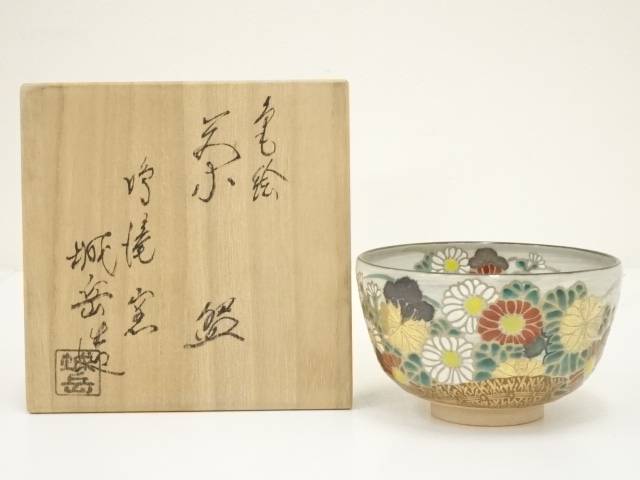 色絵
茶盌
鳴滝窯
城岳造
城岳